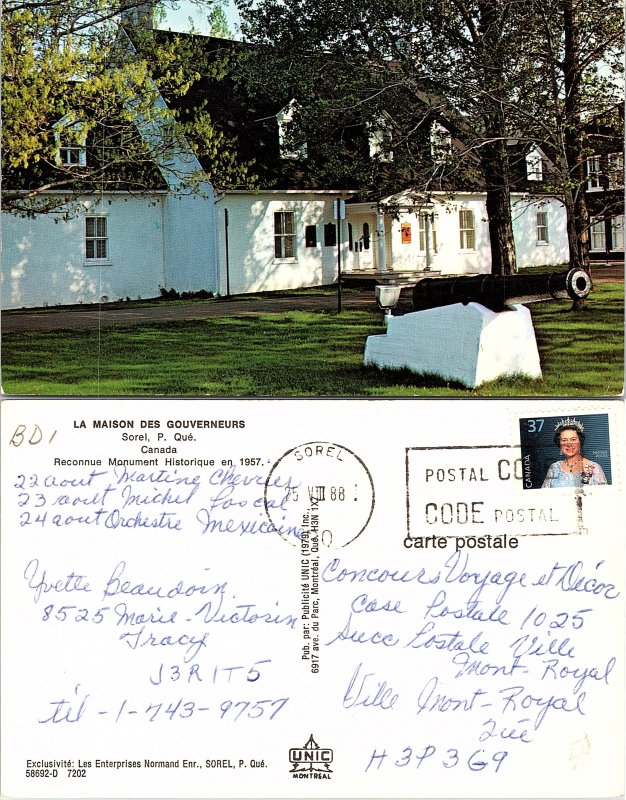 LA MAISON DES GOUVERNEURS
Sorel, P. Qué.
Canada
Reconnue Monument Historique en 1957.
BD1
22 aout Martine Chevrier
23 aout Michel Pascal
24 aout Orchestre Mexicaine
Yvette Beaudoin
8525 Marie-Victorin
Tracy
J3R1T5
tél - 1-743-9757
Exclusivité: Les Enterprises Normand Enr., SOREL, P. Qué.
58692-D 7202
Pub. par: Publicité UNIC (1979) Inc.
6917 ave. du Parc, Montréal, Qué. H3N 1X7
SOREL
VIII 88
POSTAL CO
CODE POSTAL
37
CANADA
carte postale
Concours Voyage et Décor
Case Postale 1025
Succ Postale Ville
Mont-Royal
Ville Mont-Royal
Qué
H3P 3G9
UNIC
MONTREAL